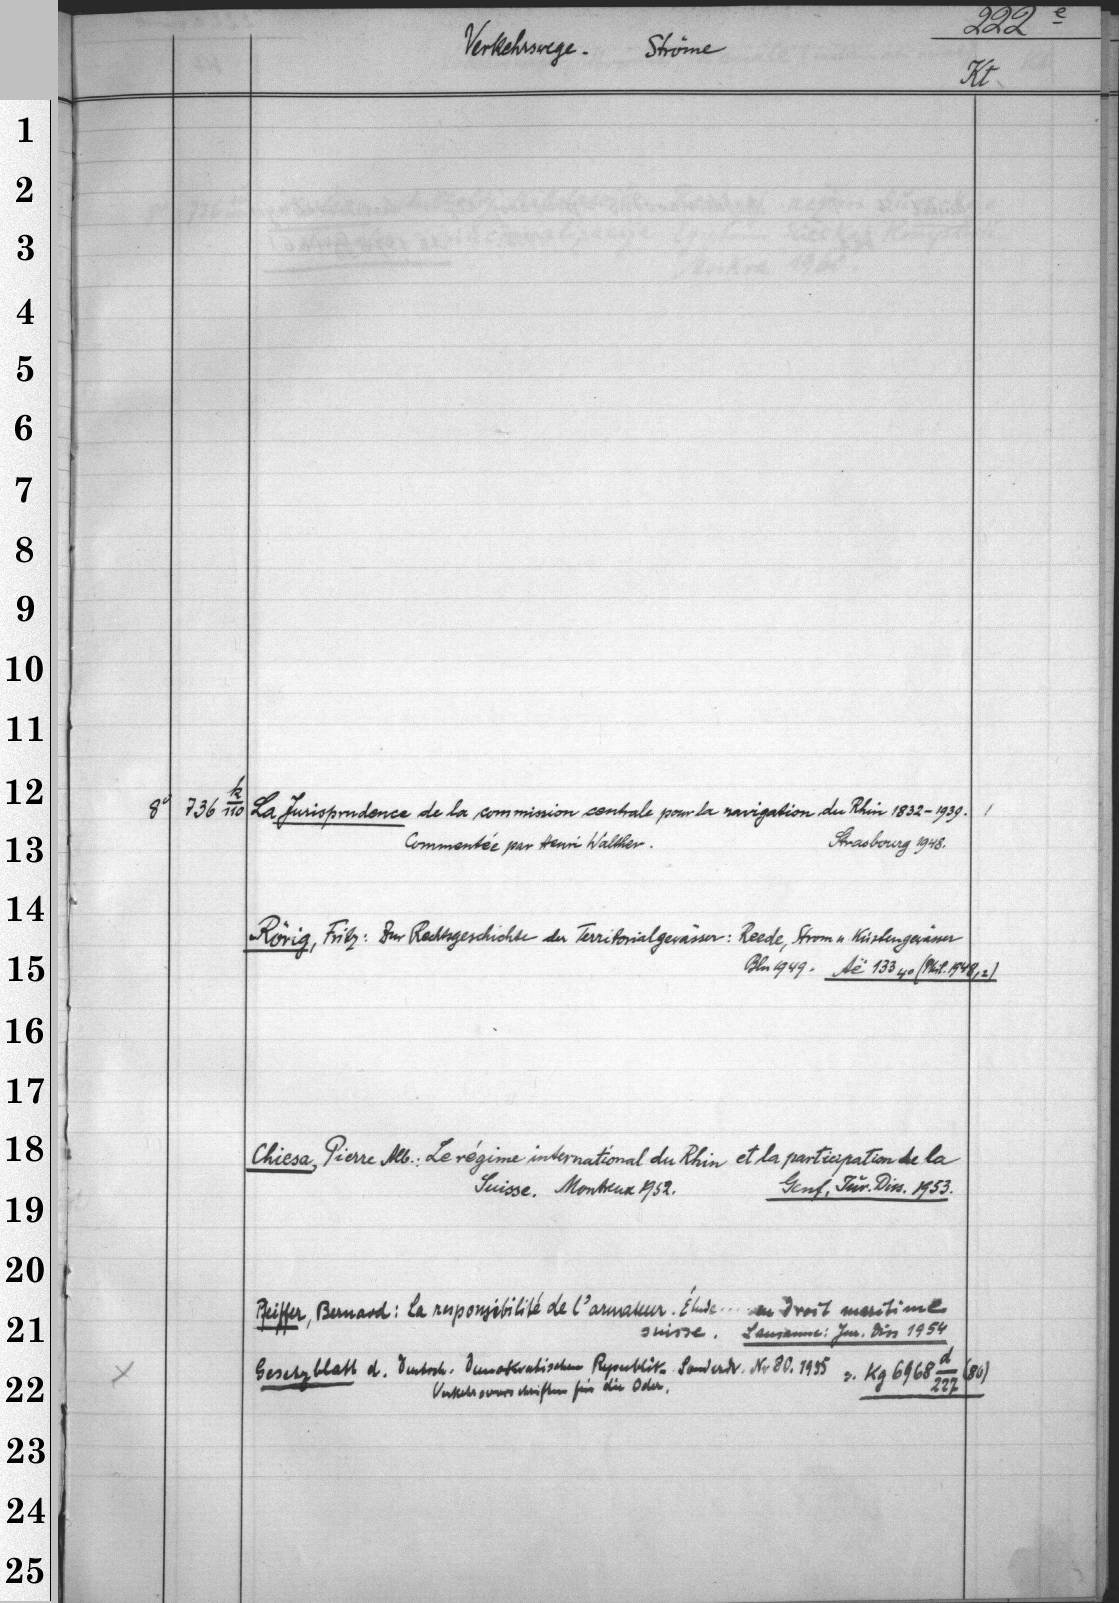 222 e
Verkehrswege. Ströme
Kt
1
2
3
4
5
6
7
8
9
10
11
12
8° 736 k/110 La Jurisprudence de la commission centrale pour la navigation du Rhin 1832-1939. 1
13
Commentée par Henri Walther. Strasbourg 1948.
14
Rörig, Fritz: Zur Rechtsgeschichte der Territorialgewässer: Reede, Strom u. Küstengewässer
15
Bln 1949. Aë 133 40 (Phil. 1948,2)
16
17
18
Chiesa, Pierre Alb.: Le régime international du Rhin et la participation de la
19
Suisse. Montreux 1952. Genf, Jur. Diss. 1953.
20
Pfeiffer, Bernard: La responsibilité de l'armateur. Étude ... en Droit maritime
21
suisse. Lausanne: Jur. Diss 1954
Gesetzblatt d. Deutsch. Demokratischen Republik. Sonderdr. Nr 80. 1955 s. Kg 6968 d/227 (80)
22
Verkehrsvorschriften für die Oder.
23
24
25